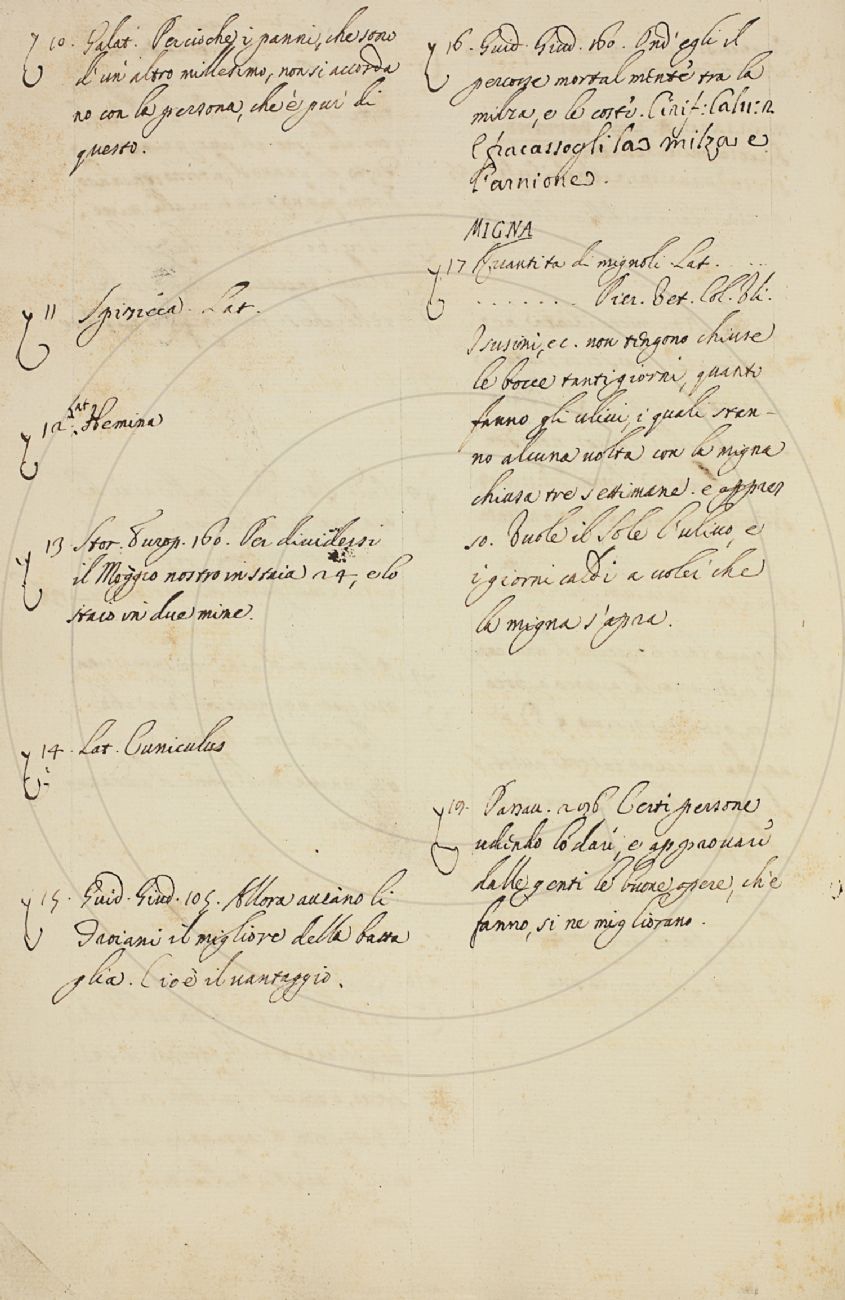 10. Galat. Percioche i panni, che sono
d'un' altro millesimo, non si accorda
no con la persona, che è pur di
questo.
11 Spizzeca. Lat.
12. Lat. Hemina
13 Stor. Europ. 160. Per dividersi
il Moggio nostro in staia 24, e lo
staio in due mine.
14. Lat. Cuniculus
15. Guid. Giud. 105. Allora aveano li
Troiani il migliore della batta
glia. Cioè il vantaggio.
16. Guid. Giud. 160. Ond' egli il
percosse mortalmente tra la
milza, e le coste. Cirif: Calu: 2
E fracassogli la milza e
l'arnione.
MIGNA
17 Quantita di mignoli Lat. . . . .
. . . . . . . . Pier. Vet. Col. Vli.
I susini, ec. non tengono chiuse
le bocce tanti giorni, quanti
fanno gli ulivi, i quali stan-
no alcuna volta con la migna
chiusa tre settimane. e appres
so. Vuole il Sole l'ulivo, e
i giorni caldi a voler che
la migna s'apra.
19. Passav. 296 Certi persone
udendo lodare, e approvare
dalle genti le buone opere, ch'e
fanno, si ne migliorano.